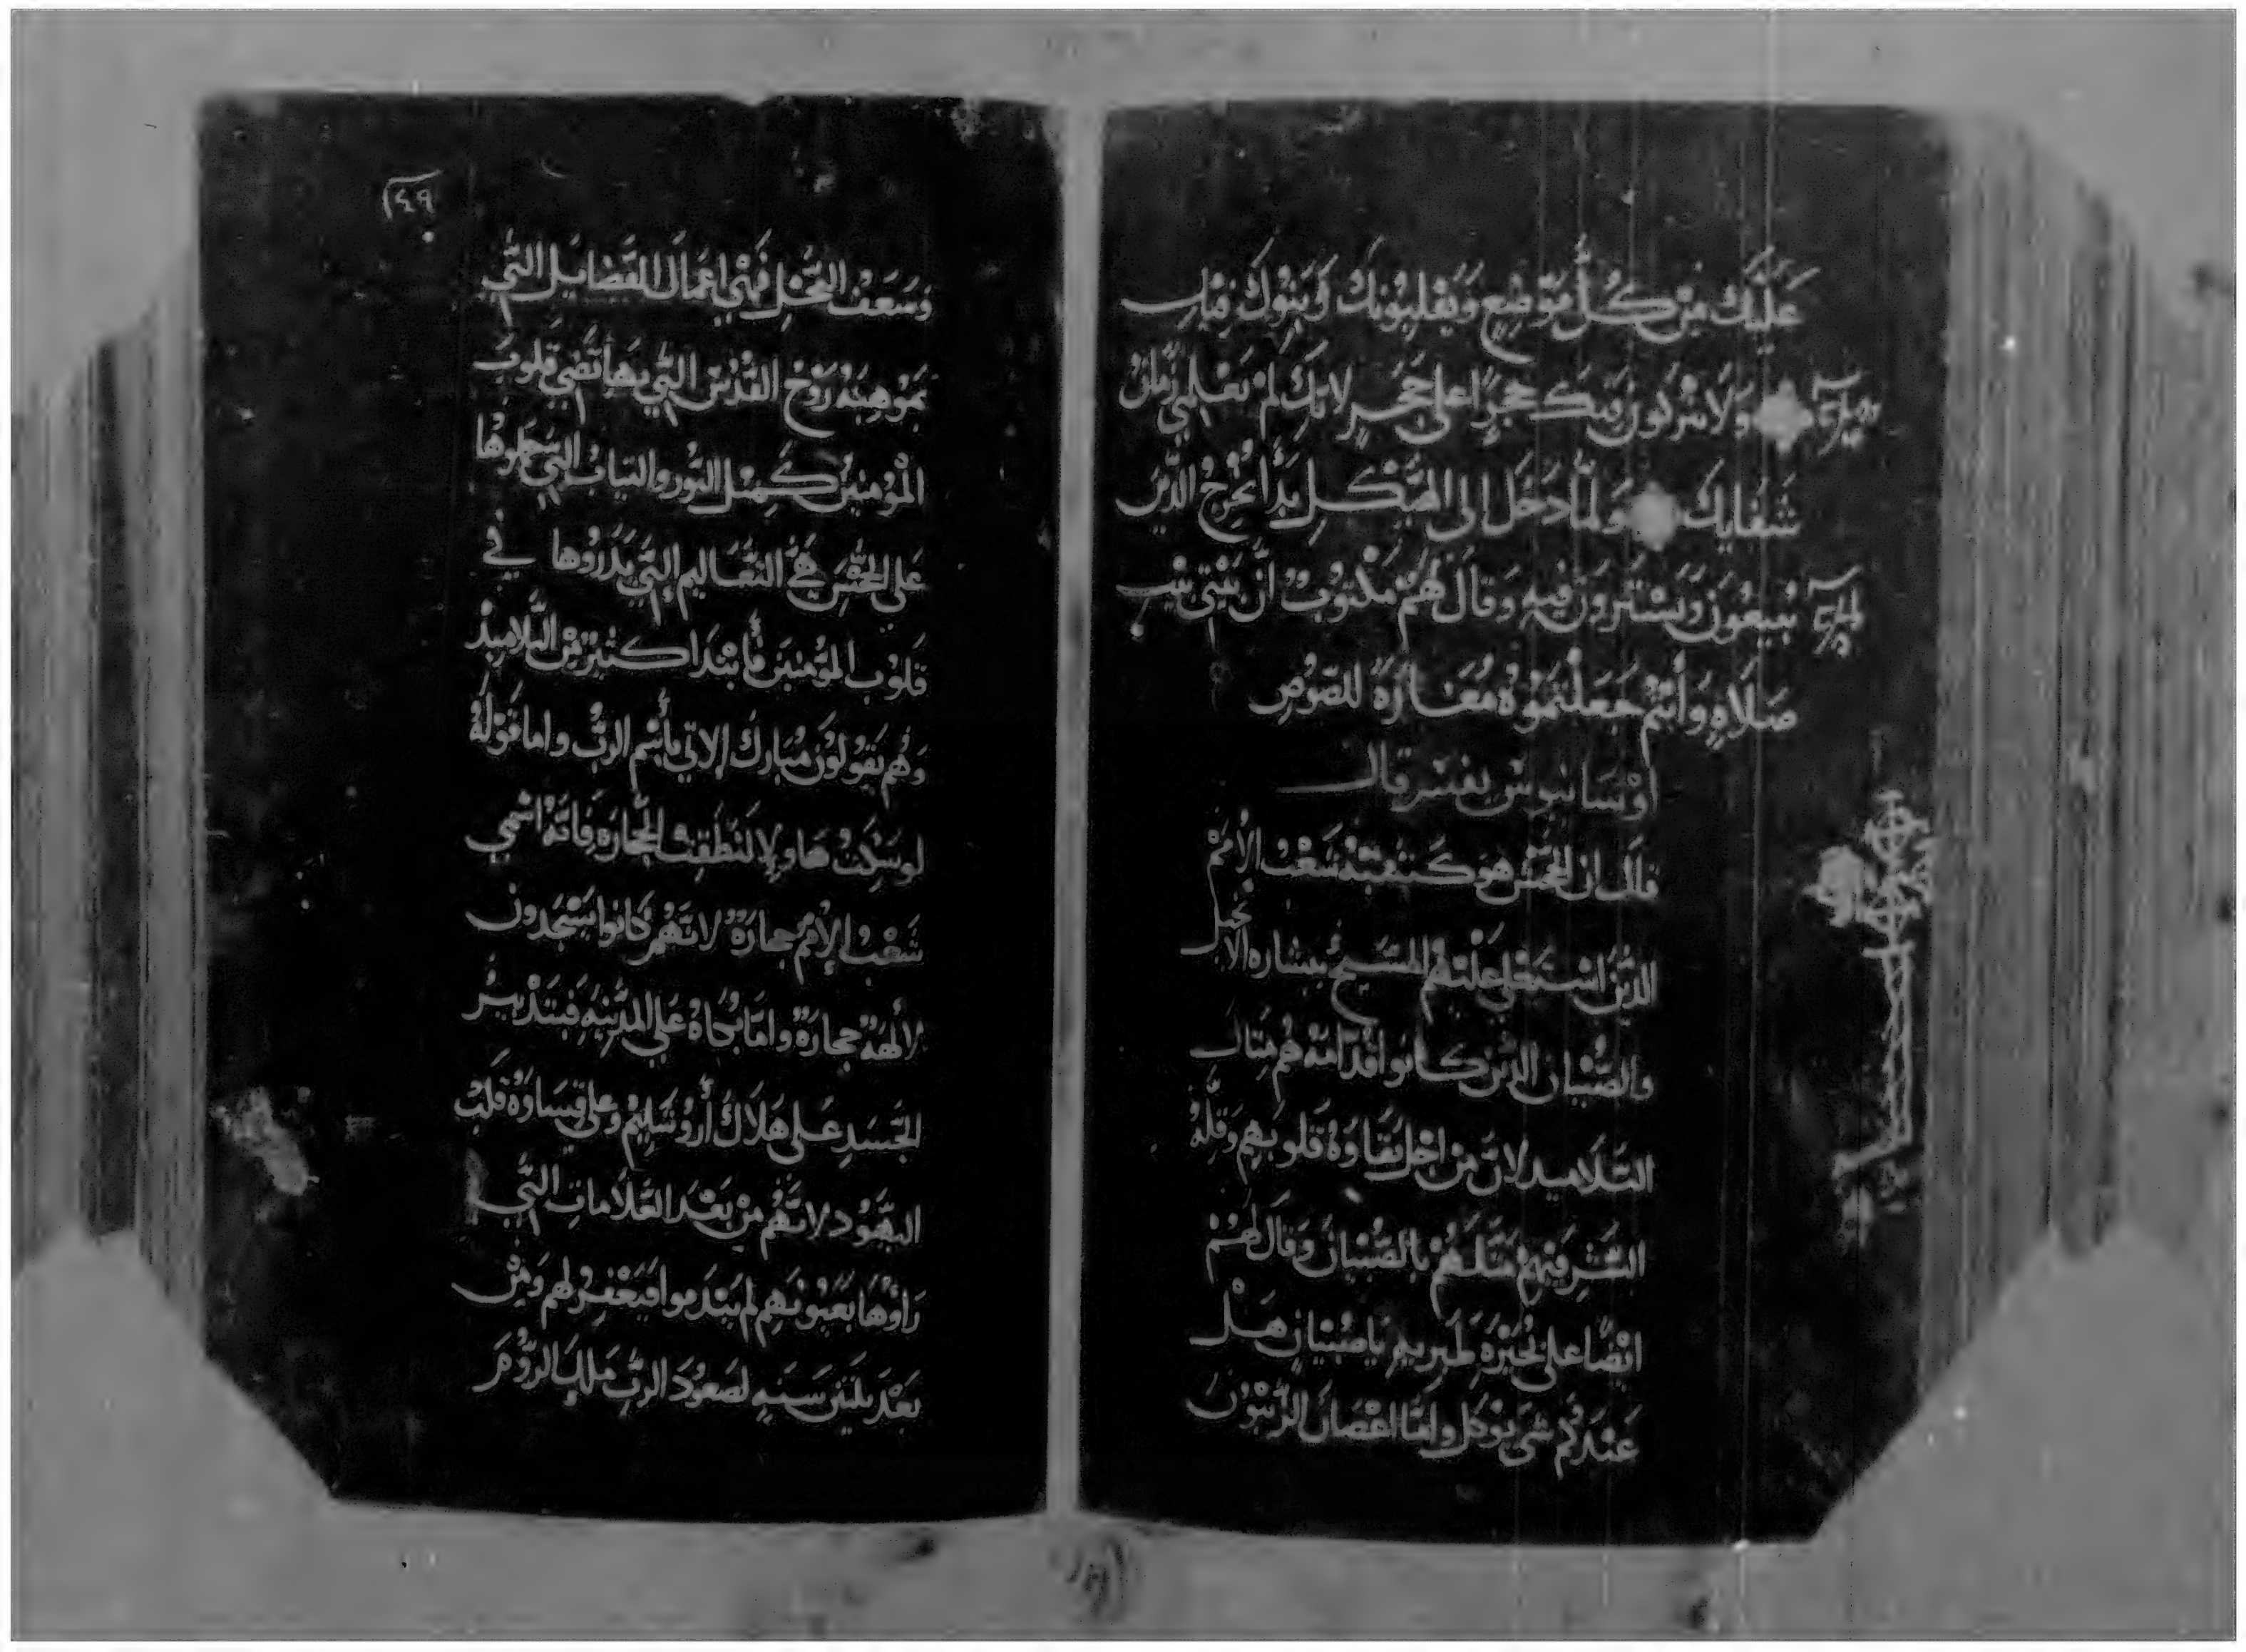 عَلَيْكِ مِنْ كُلِّ مَوْضِعٍ وَيَقْلِبُونَكِ وَبَنُوكِ فِيكِ
وَلَا يَتْرُكُونَ فِيكِ حَجَرًا عَلَى حَجَرٍ لِأَنَّكِ لَمْ تَعْلَمِي زَمَانَ
وَلَمَّا دَخَلَ الى الهَيْكَلِ بَدَأَ يُخْرِجُ الَّذِينَ
يَبِيعُونَ وَيَشْتَرُونَ فِيهِ وَقَالَ لَهُمْ مَكْتُوبٌ أَنَّ بَيْتِي بَيْتُ
صَلَاةٍ وَأَنْتُمْ جَعَلْتُمُوهُ مَغَارَةً للصُوصِ
اوْسَابيوسْ يفسر قال
قال ان الجَحْش هو شَعْب الأُمَمْ
الَّذِينَ اسْتَعْلى عَلَيْهُمْ المَسِيحُ ببشاره الانجيل
والصُّبْيان الَّذين كانوا قُدَّامَهُ هُم مِثَال
التَلاميد لان مِنْ اجْل نقاوة قلوبهم وَقِلَّةْ
الشَّر فيهِمْ مَثَّلَهُمْ بالصُّبْيان وَقَالَ لَهُمْ
ايْضًا على بُحَيْرَة طَبريه يا صُبْيان هَلْ
عنْدكم شَي يُوكل وامَّا اغْصَان الزَّيْتُون
٢٤٩
وَسَعَف النَّخْل فَهْي اعْمَال الفَضَايل الَّتي
بمَوْهِبَةْ رُوْح القُدُس الَّتي بها تُضي قلوب
المُؤمنين كَمِثْل النُّور والتياب التي
على الجَحْش هي التَّعَاليم الَّتي بَدَرُوْها في
قلوب المُؤمنين فَأبْتَدَا كثير مِنْ التَّلاميد
وَهُم يَقُولُون مُبارك الاتي بأسْم الرَّبْ واما قَوْلهْ
لو سَكَتْ هاولا لنَطَقت الحجَاره فانَّهُ اسْمي
شَعْب الأُمَم حجارَةْ لانَّهُم كانوا يَسْجدون
لالهةْ حجارَةْ وامَّا بُكاهُ عَلى المَدينه فبتدبير
الجَسَد على هَلاك أُروشَليم وعلى قساوة قلب
اليَهُود لانَّهُم مِنْ بَعْد العَلامات التي
رَاوْها بعيونهم لم يَنْدَموا فيَغْفِر لهم وَمِنْ
بَعْد تلتين سَنه لصعُود الرب ملك الرُّوم